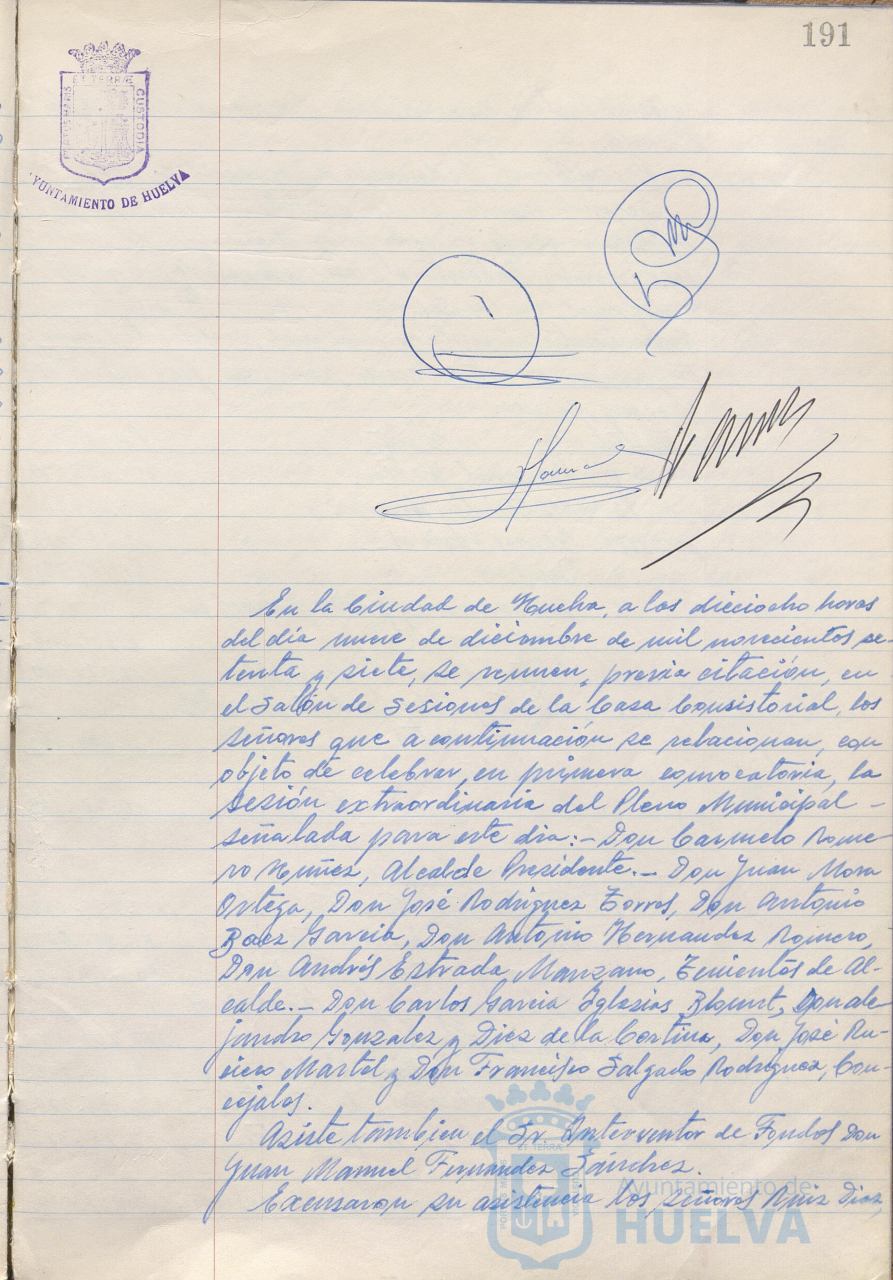 191
ET TERRÆ
CUSTODIA
AYUNTAMIENTO DE HUELVA
En la Ciudad de Huelva, a las dieciocho horas
del día nueve de diciembre de mil novecientos se-
tenta y siete, se reunen, previa citación, en
el Salón de Sesiones de la Casa Consistorial, los
señores que a continuación se relacionan, con
objeto de celebrar, en primera convocatoria, la
sesión extraordinaria del Pleno Municipal -
señalada para este dia:- Don Carmelo Rome-
ro Nuñez, Alcalde Presidente.- Don Juan Mora
Ortega, Don José Rodriguez Torres, Don Antonio
Baez Garcia, Don Antonio Hernandez Romero,
Don Andrés Estrada Manzano, Tenientes de Al-
calde.- Don Carlos Garcia Iglesias Blount, Don Ale
jandro Gonzalez y Diez de la Cortina, Don José Ru-
cicio Martel y Don Francisco Salgado Rodriguez, Con-
cejales.
Asiste tambien el Sr. Interventor de Fondos Don
Juan Manuel Fernández Sánchez.
Excusaron su asistencia los señores Ruiz Diaz,
Ayuntamiento de
HUELVA